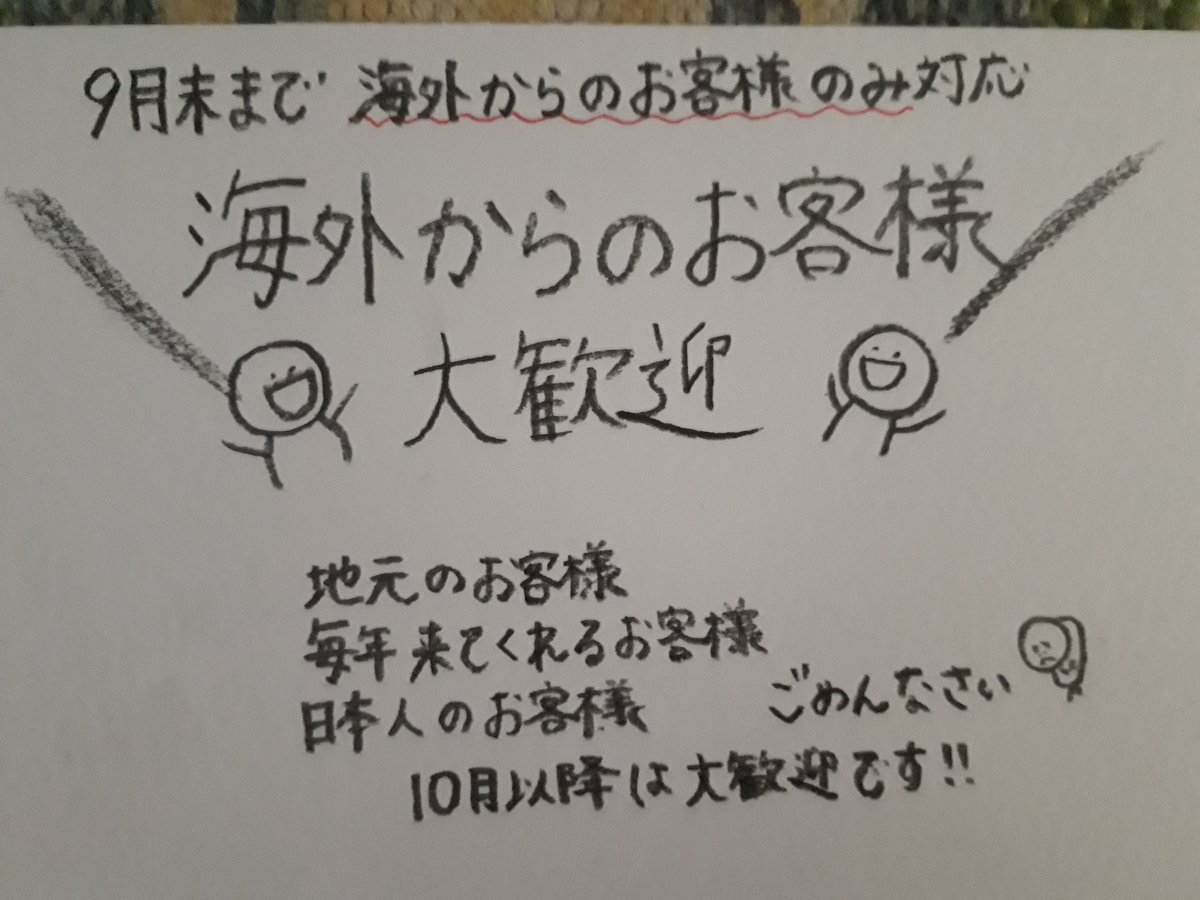 9月末まで 海外からのお客様のみ対応
海外からのお客様
大歓迎
地元のお客様
毎年来てくれるお客様
日本人のお客様 ごめんなさい
10月以降は大歓迎です!!